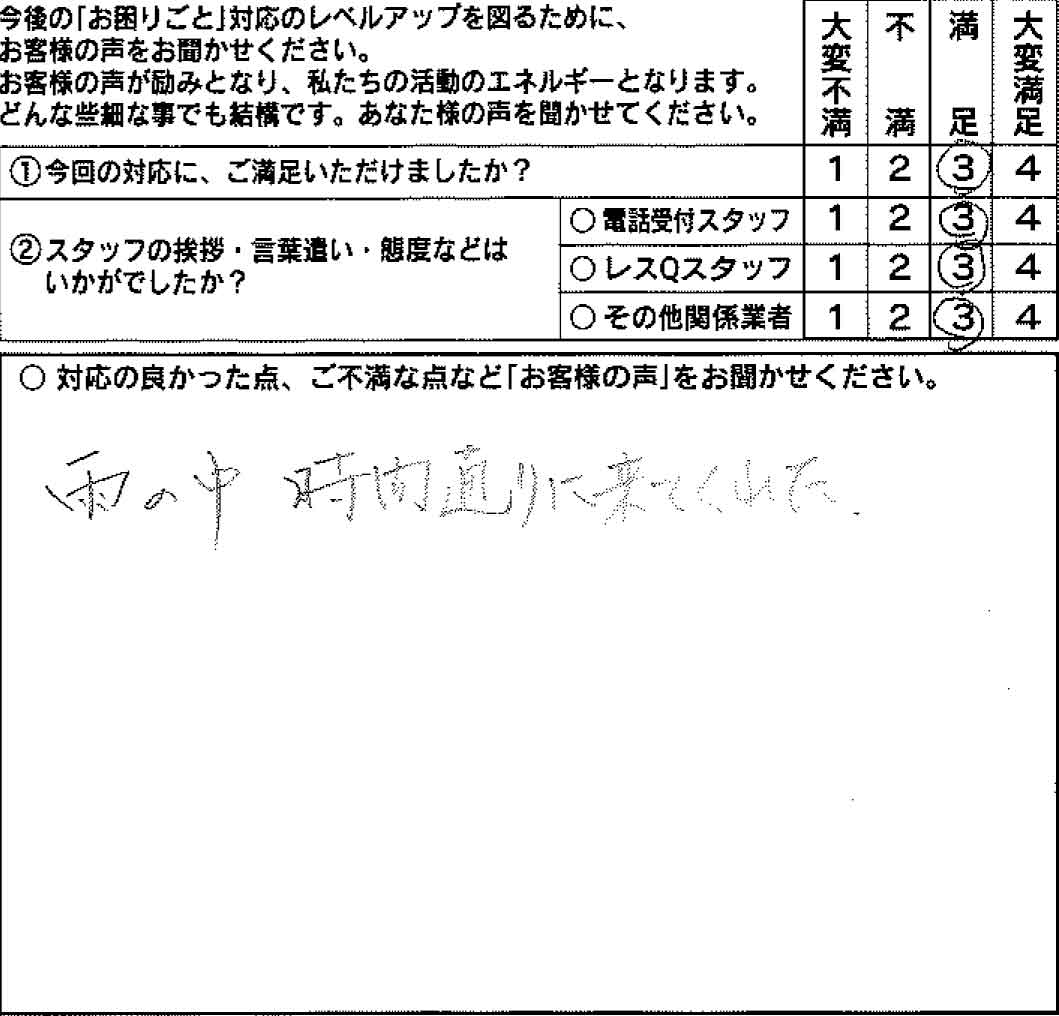 今後の「お困りごと」対応のレベルアップを図るために、
お客様の声をお聞かせください。
お客様の声が励みとなり、私たちの活動のエネルギーとなります。
どんな些細な事でも結構です。あなた様の声を聞かせてください。
大変不満 不満 満足 大変満足
①今回の対応に、ご満足いただけましたか? 1 2 3 4
②スタッフの挨拶・言葉遣い・態度などは
いかがでしたか?
○電話受付スタッフ 1 2 3 4
○レスQスタッフ 1 2 3 4
○その他関係業者 1 2 3 4
○ 対応の良かった点、ご不満な点など「お客様の声」をお聞かせください。
雨の中 時間直りに来てくれた.